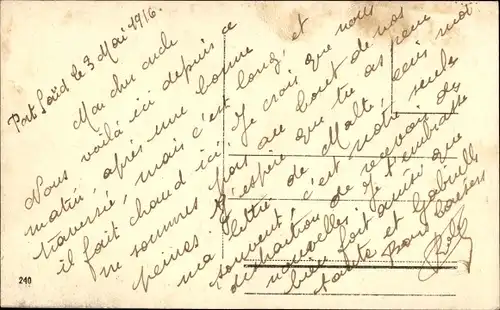 Port Saïd le 3 Mai 1916.
Mon cher oncle
Nous voilà ici depuis ce
matin, après une bonne
traversée, mais c'est long, et
il fait chaud ici. Je crois que nous
ne sommes pas au bout de nos
peines. J'espère que tu as reçu
ma lettre de Malte, écris moi
souvent, c'est notre seule
distraction de recevoir des
nouvelles. Je t'embrasse
bien fort ainsi que
tante et Gabrielle
Bons baisers
240